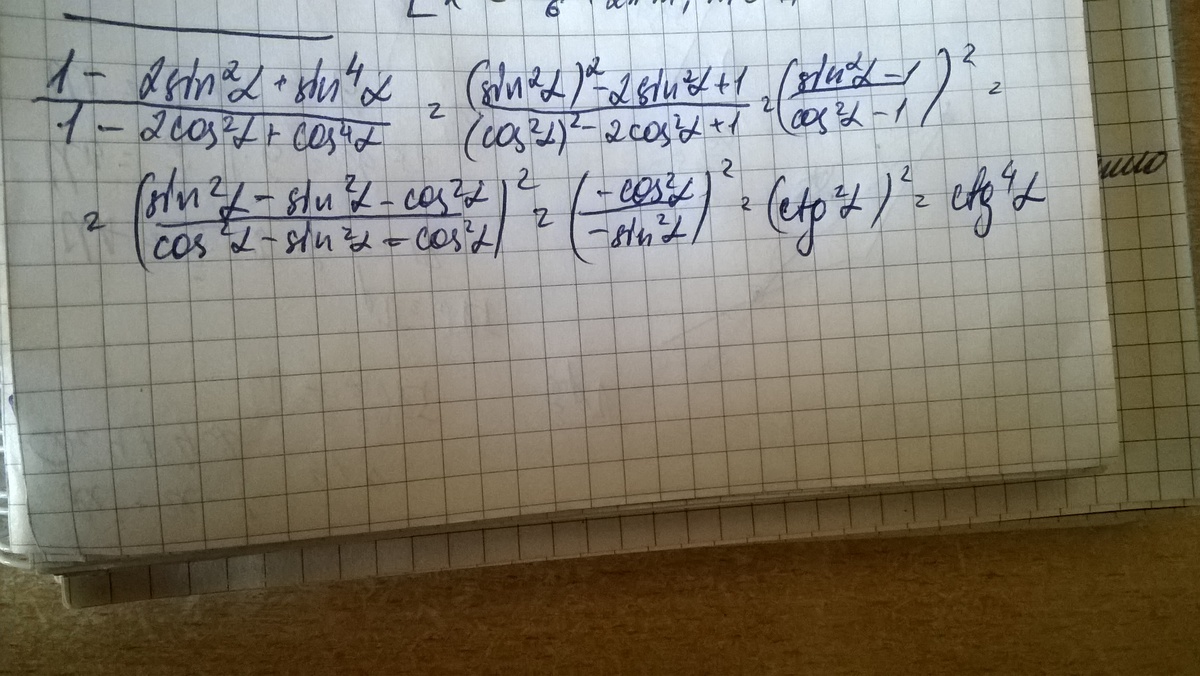 (1 - 2sin²α + sin⁴α)/(1 - 2cos²α + cos⁴α) = ((sin²α)² - 2sin²α + 1)/((cos²α)² - 2cos²α + 1) = ((sin²α - 1)/(cos²α - 1))² =
= ((sin²α - sin²α - cos²α)/(cos²α - sin²α - cos²α))² = ((-cos²α)/(-sin²α))² = (ctg²α)² = ctg⁴α